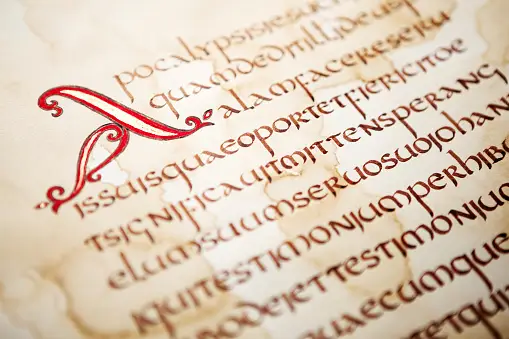 Apocalypsisiesu
quamdeditillideus
alamfacereseru
issuisquaeoportetfiericitoe
tsignificauitmittensperang
elumsuumseruosuojohan
iquitestimoniumperhib
bodeiettestimonium
quaecumque
etqui